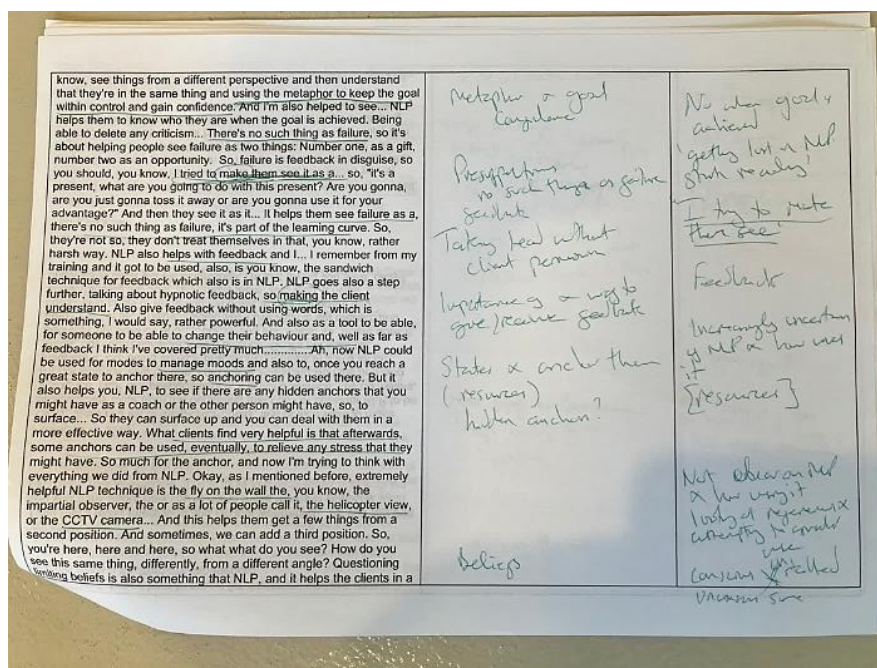 know, see things from a different perspective and then understand
that they're in the same thing and using the metaphor to keep the goal
within control and gain confidence. And I'm also helped to see... NLP
helps them to know who they are when the goal is achieved. Being
able to delete any criticism... There's no such thing as failure, so it's
about helping people see failure as two things: Number one, as a gift,
number two as an opportunity. So, failure is feedback in disguise, so
you should, you know, I tried to make them see it as a... so, "it's a
present, what are you going to do with this present? Are you gonna,
are you just gonna toss it away or are you gonna use it for your
advantage?" And then they see it as it... It helps them see failure as a,
there's no such thing as failure, it's part of the learning curve. So,
they're not so, they don't treat themselves in that, you know, rather
harsh way. NLP also helps with feedback and I... I remember from my
training and it got to be used, also, is you know, the sandwich
technique for feedback which also is in NLP. NLP goes also a step
further, talking about hypnotic feedback, so making the client
understand. Also give feedback without using words, which is
something, I would say, rather powerful. And also as a tool to be able,
for someone to be able to change their behaviour and, well as far as
feedback I think I've covered pretty much...............Ah, now NLP could
be used for modes to manage moods and also to, once you reach a
great state to anchor there, so anchoring can be used there. But it
also helps you, NLP, to see if there are any hidden anchors that you
might have as a coach or the other person might have, so, to
surface... So they can surface up and you can deal with them in a
more effective way. What clients find very helpful is that afterwards,
some anchors can be used, eventually, to relieve any stress that they
might have. So much for the anchor, and now I'm trying to think with
everything we did from NLP. Okay, as I mentioned before, extremely
helpful NLP technique is the fly on the wall the, you know, the
impartial observer, the or as a lot of people call it, the helicopter view,
or the CCTV camera... And this helps them get a few things from a
second position. And sometimes, we can add a third position. So,
you're here, here and here, so what what do you see? How do you
see this same thing, differently, from a different angle? Questioning
limiting beliefs is also something that NLP, and it helps the clients in a
Metaphor goal
Presuppositions
no such thing as failure
feedback
Taking lead without
client permission
Importance way to
give/receive feedback
States anchor them
(resources)
hidden anchors?
Beliefs
No when goal
achieved
'getting lost in NLP
I try to make
them see'
Feedback
Increasingly uncertain
NLP how uses
it
[resources]
Not clear on NLP
how using it
attempting to
use